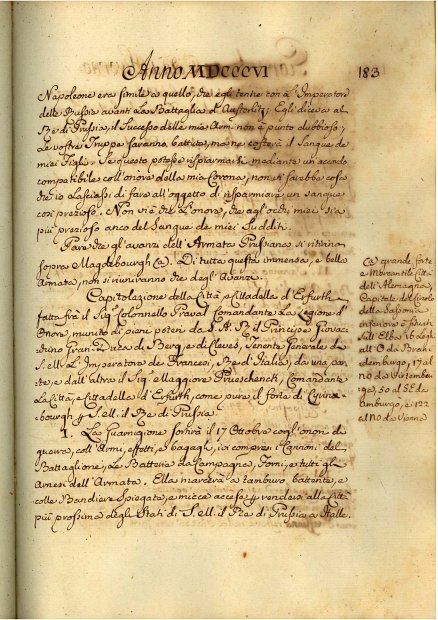 Anno MDCCCVI
183
Napoleone era simile a quello, che egli tenne con l'Imperatore
delle Russie avanti la Battaglia d'Austerlitz; Egli diceva al
Re di Prussia, il Successo delle mie Armi non è punto dubbioso;
Le vostre Truppe saranno battute, ma ne costerà il Sangue de'
miei Figli. Se questo potesse risparmiarsi mediante un accordo
compatibile coll'onore della mia Corona, non vi sarebbe cosa
che io lasciassi di fare all'oggetto di risparmiare un sangue
così prezioso. Non vi è che l'onore, che agl'occhi miei sia
più prezioso anco del Sangue de' miei Sudditi.
Pare che gl'avanzi dell'Armata Prussiana si ritirino
sopra Magdebourgh (a). Di tutta questa immensa, e bella
Armata, non si riuniranno che degl'Avanzi.
Capitolazione della Città, e Cittadella d'Erfurth
fatta frà il Sig. Colonnello Preval Comandante la Legione d'
Onore, munito di pieni poteri da S. A. I. il Principe Giovac
chino Gran-Duca di Berg, e di Cleves, Tenente Generale di
S. M. L'Imperatore de' Francesi, Re d'Italia, da una par
te, e dall'altra il Sig. Maggiore Prueschenck, Comandante
la Città, e Cittadella d'Erfurth, come pure il forte di Cyriax
bourgh per S. M. il Re di Prussia.
1. La Guarnigione sortirà il 17 Ottobre cogl'onori di
guerra, coll'Armi, effetti, e bagagli, ivi compresi i Cannoni del
Battaglione, le Batterie da Campagna, Forni, e tutti gli
Arnesi dell'Armata. Ella marcerà a tamburo battente, e
colle Bandiere Spiegate, e micce accese per rendersi alla Città
più prossima degli Stati di S. M. il Re di Prussia a Halle.
(a) grande forte
e Mercantile Città
dell'Alemagna,
Capitale del Circolo
della Sassonia
inferiore è situata
sull'Elba 16 degli
all'O. da Brandemburgo, 47 al
no da Vittemberga, 30 al SE da
Amburgo, e 122
al no da Vienna